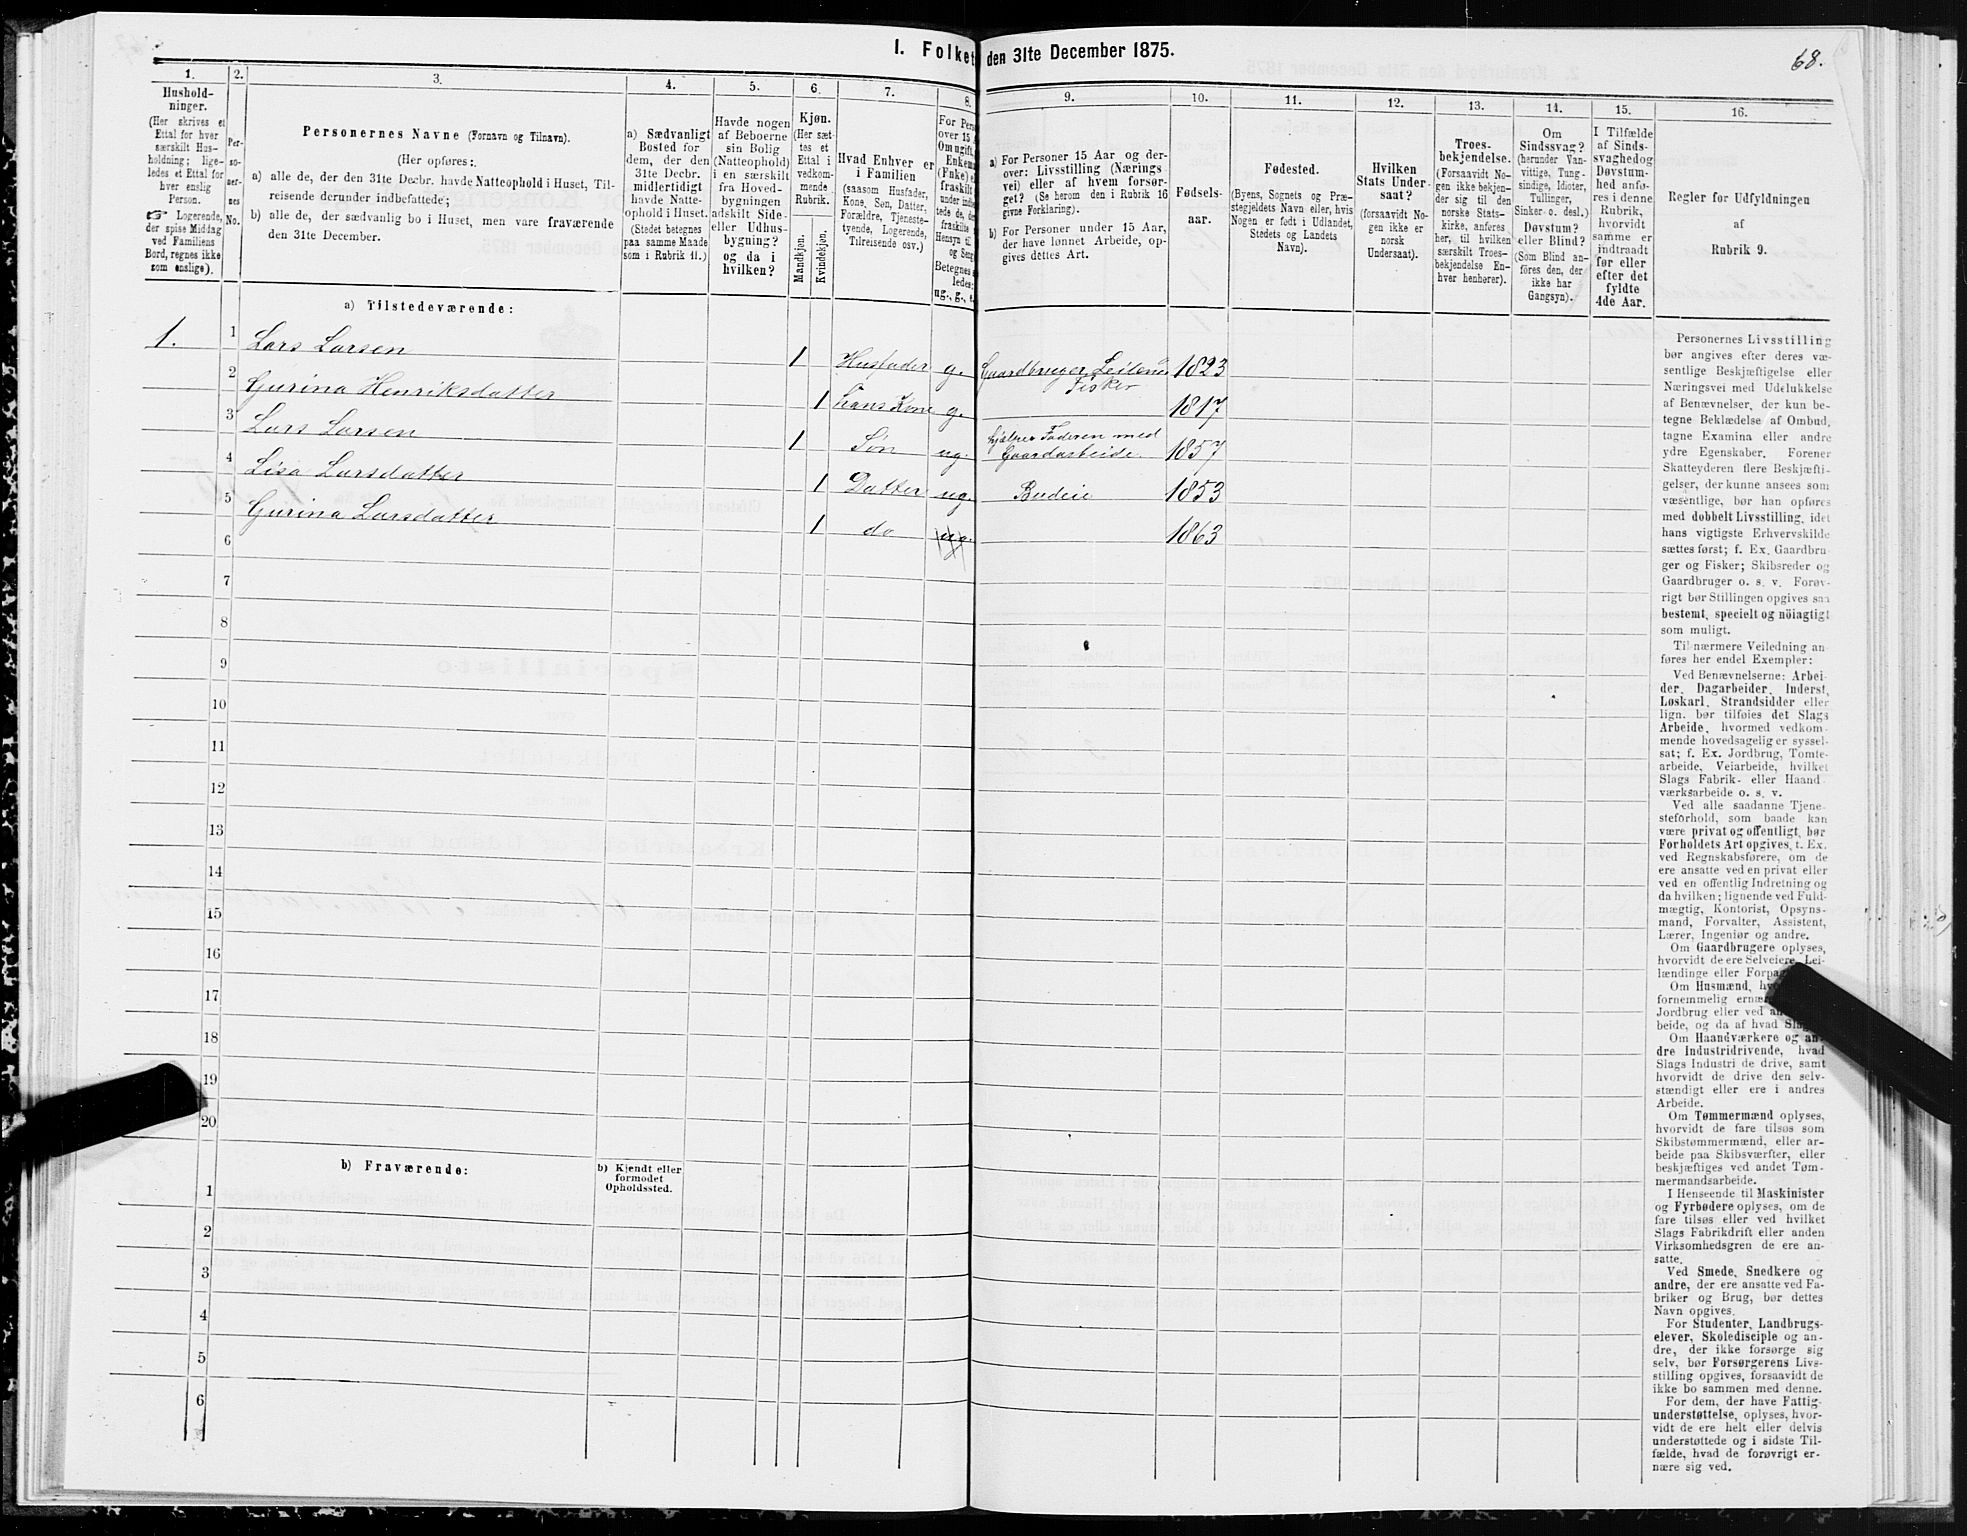 I. Folket den 31te December 1875.
68.
1.
2.
3.
4.
5.
6.
7.
8.
9.
10.
11.
12.
13.
14.
15.
16.
Hushold-
ninger.
(Her skrives et
Ettal for hver
særskilt Hus-
holdning; lige-
ledes et Ettal for
hver enslig
Person.
☞ Logerende,
der spise Middag
ved Familiens
Bord, regnes ikke
som enslige).
Per-
so-
ner-
nes
No.
Personernes Navne (Fornavn og Tilnavn).
(Her opføres:.
a) alle de, der den 31te Decbr. havde Natteophold i Huset, Til-
reisende derunder indbefattede;
b) alle de, der sædvanlig bo i Huset, men vare fraværende
den 31te December.
a) Sædvanligt
Bosted for
dem, der den
31te Decbr.
midlertidigt
havde Natte-
ophold i Huset.
(Stedet betegnes
paa samme Maade
som i Rubrik 11.)
Havde nogen
af Beboerne
sin Bolig
(Natteophold)
i en særskilt
fra Hoved-
bygningen
adskilt Side-
eller Udhus-
bygning?
og da i
hvilken?
Kjøn.
(Her sæt-
tes et
Ettal i
vedkom-
mende
Rubrik.
Mandkjøn.
Kvindekjøn.
Hvad Enhver er
i Familien
(saasom Husfader,
Kone, Søn, Datter,
Forældre, Tjeneste-
tyende, Logerende,
Tilreisende osv.)
For Pers
over 15 A
Om ugift,
Enkem
(Enke) e
fraskilt
under indbe
tede de, de
fraskilte
Hensyn til
og Seng
Betegnes s
ledes:
ug., g., e.
a) For Personer 15 Aar og der-
over: Livsstilling (Nærings-
vei) eller af hvem forsør-
get? (Se herom den i Rubrik 16
givne Forklaring).
b) For Personer under 15 Aar,
der have lønnet Arbeide, op-
gives dettes Art.
Fødsels-
aar.
Fødested.
(Byens, Sognets og Præ-
stegjeldets Navn eller, hvis
Nogen er født i Udlandet,
Stedets og Landets
Navn).
Hvilken
Stats Under-
saat?
(forsaavidt No-
gen ikke er
norsk
Undersaat).
Troes-
bekjendelse.
(Forsaavidt No-
gen ikke bekjen-
der sig til den
norske Stats-
kirke, anføres
her, til hvilken
særskilt Troes-
bekjendelse En-
hver henhører).
Om
Sindssvag?
(herunder Van-
vittige, Tung-
sindige, Idioter,
Tullinger,
Sinker o. desl.)
Døvstum?
eller Blind?
(Som Blind an-
føres den, der
ikke har
Gangsyn).
I Tilfælde
af Sinds-
svaghedog
Døvstum-
hed anfø-
res i denne
Rubrik,
hvorvidt
samme er
indtraadt
før eller
efter det
fyldte
4de Aar.
Regler for Udfyldningen
af
Rubrik 9.
a) Tilstedeværende:
1. 1 Lars Larsen 1 Husfader g. Gaardbruger, Leilend 1823
Fisker
2 Gurina Henriksdatter 1 hans Kone g. 1817
3 Lars Larsen 1 Søn ug. hjælper Faderen med 1857
Gaardarbeide.
4 Lisa Larsdatter 1 Datter ug. Budeie 1853
5 Gurina Larsdatter 1 do ug. 1863
6
7
8
9
10
11
12
13
14
15
16
17
18
19
20
b) Fraværende:
b) Kjendt eller
formodet
Opholdssted.
1
2
3
4
5
6
Personernes Livsstilling
bør angives efter deres væ-
sentlige Beskjæftigelse eller
Næringsvei med Udelukkelse
af Benævnelser, der kun be-
tegne Beklædelse af Ombud,
tagne Examina eller andre
ydre Egenskaber. Forener
Skatteyderen flere Beskjæfti-
gelser, der kunne ansees som
væsentlige, bør han opføres
med dobbelt Livsstilling, idet
hans vigtigste Erhvervskilde
sættes først; f. Ex. Gaardbru-
ger og Fisker; Skibsreder og
Gaardbruger o. s. v. Forøv-
rigt bør Stillingen opgives saa
bestemt, specielt og nöiagtigt
som muligt.
Til nærmere Veiledning an-
føres her endel Exempler:
Ved Benævnelserne: Arbei-
der, Dagarbeider, Inderst,
Løskarl, Strandsidder eller
lign. bør tilføies det Slags
Arbeide, hvormed vedkom-
mende hovedsagelig er syssel-
sat; f. Ex. Jordbrug, Tomte-
arbeide, Veiarbeide, hvilket
Slags Fabrik- eller Haand-
værksarbeide o. s. v.
Ved alle saadanne Tjene-
steforhold, som baade kan
være privat og offentligt, bør
Forholdets Art opgives, t. Ex.
ved Regnskabsførere, om de
ere ansatte ved en privat eller
ved en offentlig Indretning og
da hvilken; lignende ved Fuld-
mægtig, Kontorist, Opsyns-
mand, Forvalter, Assistent,
Lærer, Ingeniør og andre.
Om Gaardbrugere oplyses,
hvorvidt de ere Selveiere, Lei-
lændinge eller Forpag
Om Husmænd, hv
fornemmelig ernæ
Jordbrug eller ved an
beide, og da af hvad Slag
Om Haandværkere og an-
dre Industridrivende, hvad
Slags Industri de drive, samt
hvorvidt de drive den selv-
stændigt eller ere i andres
Arbeide.
Om Tømmermænd oplyses,
hvorvidt de fare tilsøs som
Skibstømmermænd, eller ar-
beide paa Skibsværfter, eller
beskjæftiges ved andet Tøm-
mermandsarbeide.
I Henseende til Maskinister
og Fyrbødere oplyses, om de
fare tilsøs eller ved hvilket
Slags Fabrikdrift eller anden
Virksomhedsgren de ere an-
satte.
Ved Smede, Snedkere og
andre, der ere ansatte ved Fa-
briker og Brug, bør dettes
Navn opgives.
For Studenter, Landbrugs-
elever, Skoledisciple og an-
dre, der ikke forsørge sig
selv, bør Forsørgerens Livs-
stilling opgives, forsaavidt de
ikke bo sammen med denne.
For dem, der have Fattig-
understøttelse, oplyses, hvor-
vidt de ere helt eller delvis
understøttede og i sidste Til-
fælde, hvad de forøvrigt er-
nære sig ved.